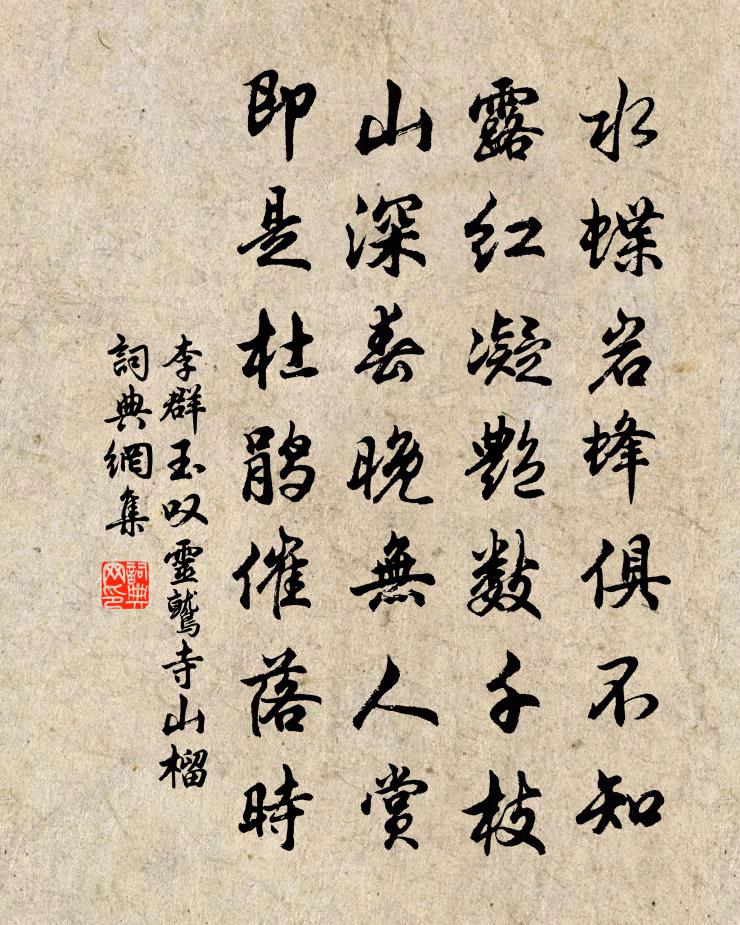 水蝶岩蜂俱不知
露红凝艳数千枝
山深春晚無人赏
即是杜鹃催落時
李群玉叹靈鷲寺山榴
詞典網集
詞典网印